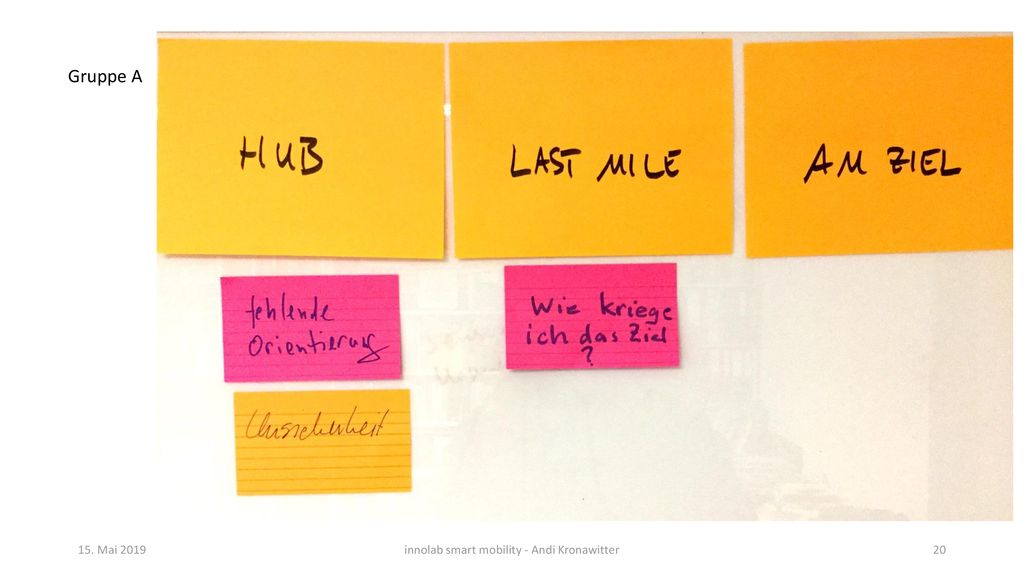 Gruppe A
HUB
LAST MILE
AM ZIEL
fehlende
Orientierung
Unsicherheit
Wie kriege
ich das Ziel
?
15. Mai 2019
innolab smart mobility - Andi Kronawitter
20